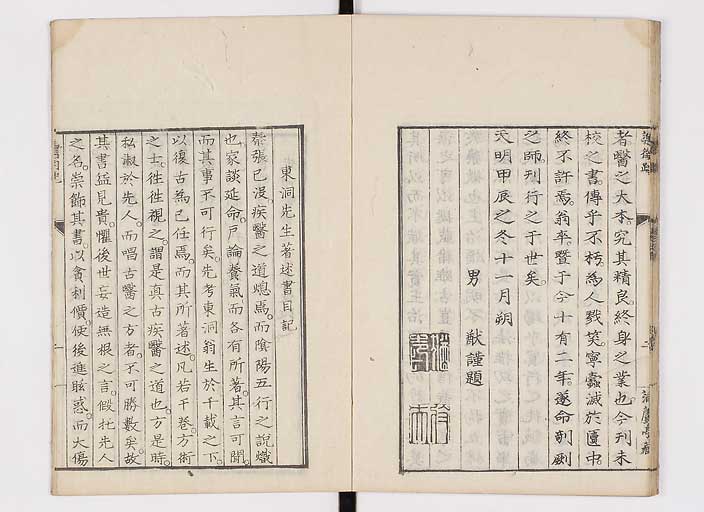 者醫之大本究其精良終身之業也今刊未
校之書傳乎不朽為人戮笑寧蠹滅於匱中
終不許焉翁卒暨于今十有二年遂命剞劂
之師刊行之于世矣
天明甲辰之冬十一月朔
男 猷謹題
東洞先生著述書目記
扁張已沒疾醫之道熄焉而陰陽五行之說熾
也家談延命戶論養氣而各有所著其言可聞
而其事不可行矣先考東洞翁生於千載之下
以復古為己任焉而其所著述凡若干卷方術
之士往往視之謂是真古疾醫之道也方是時
私淑於先人而唱古醫之方者不可勝數矣故
其書益見貴懼後世妄造無根之言假托先人
之名崇飾其書以貪利價使後進眩惑而大傷